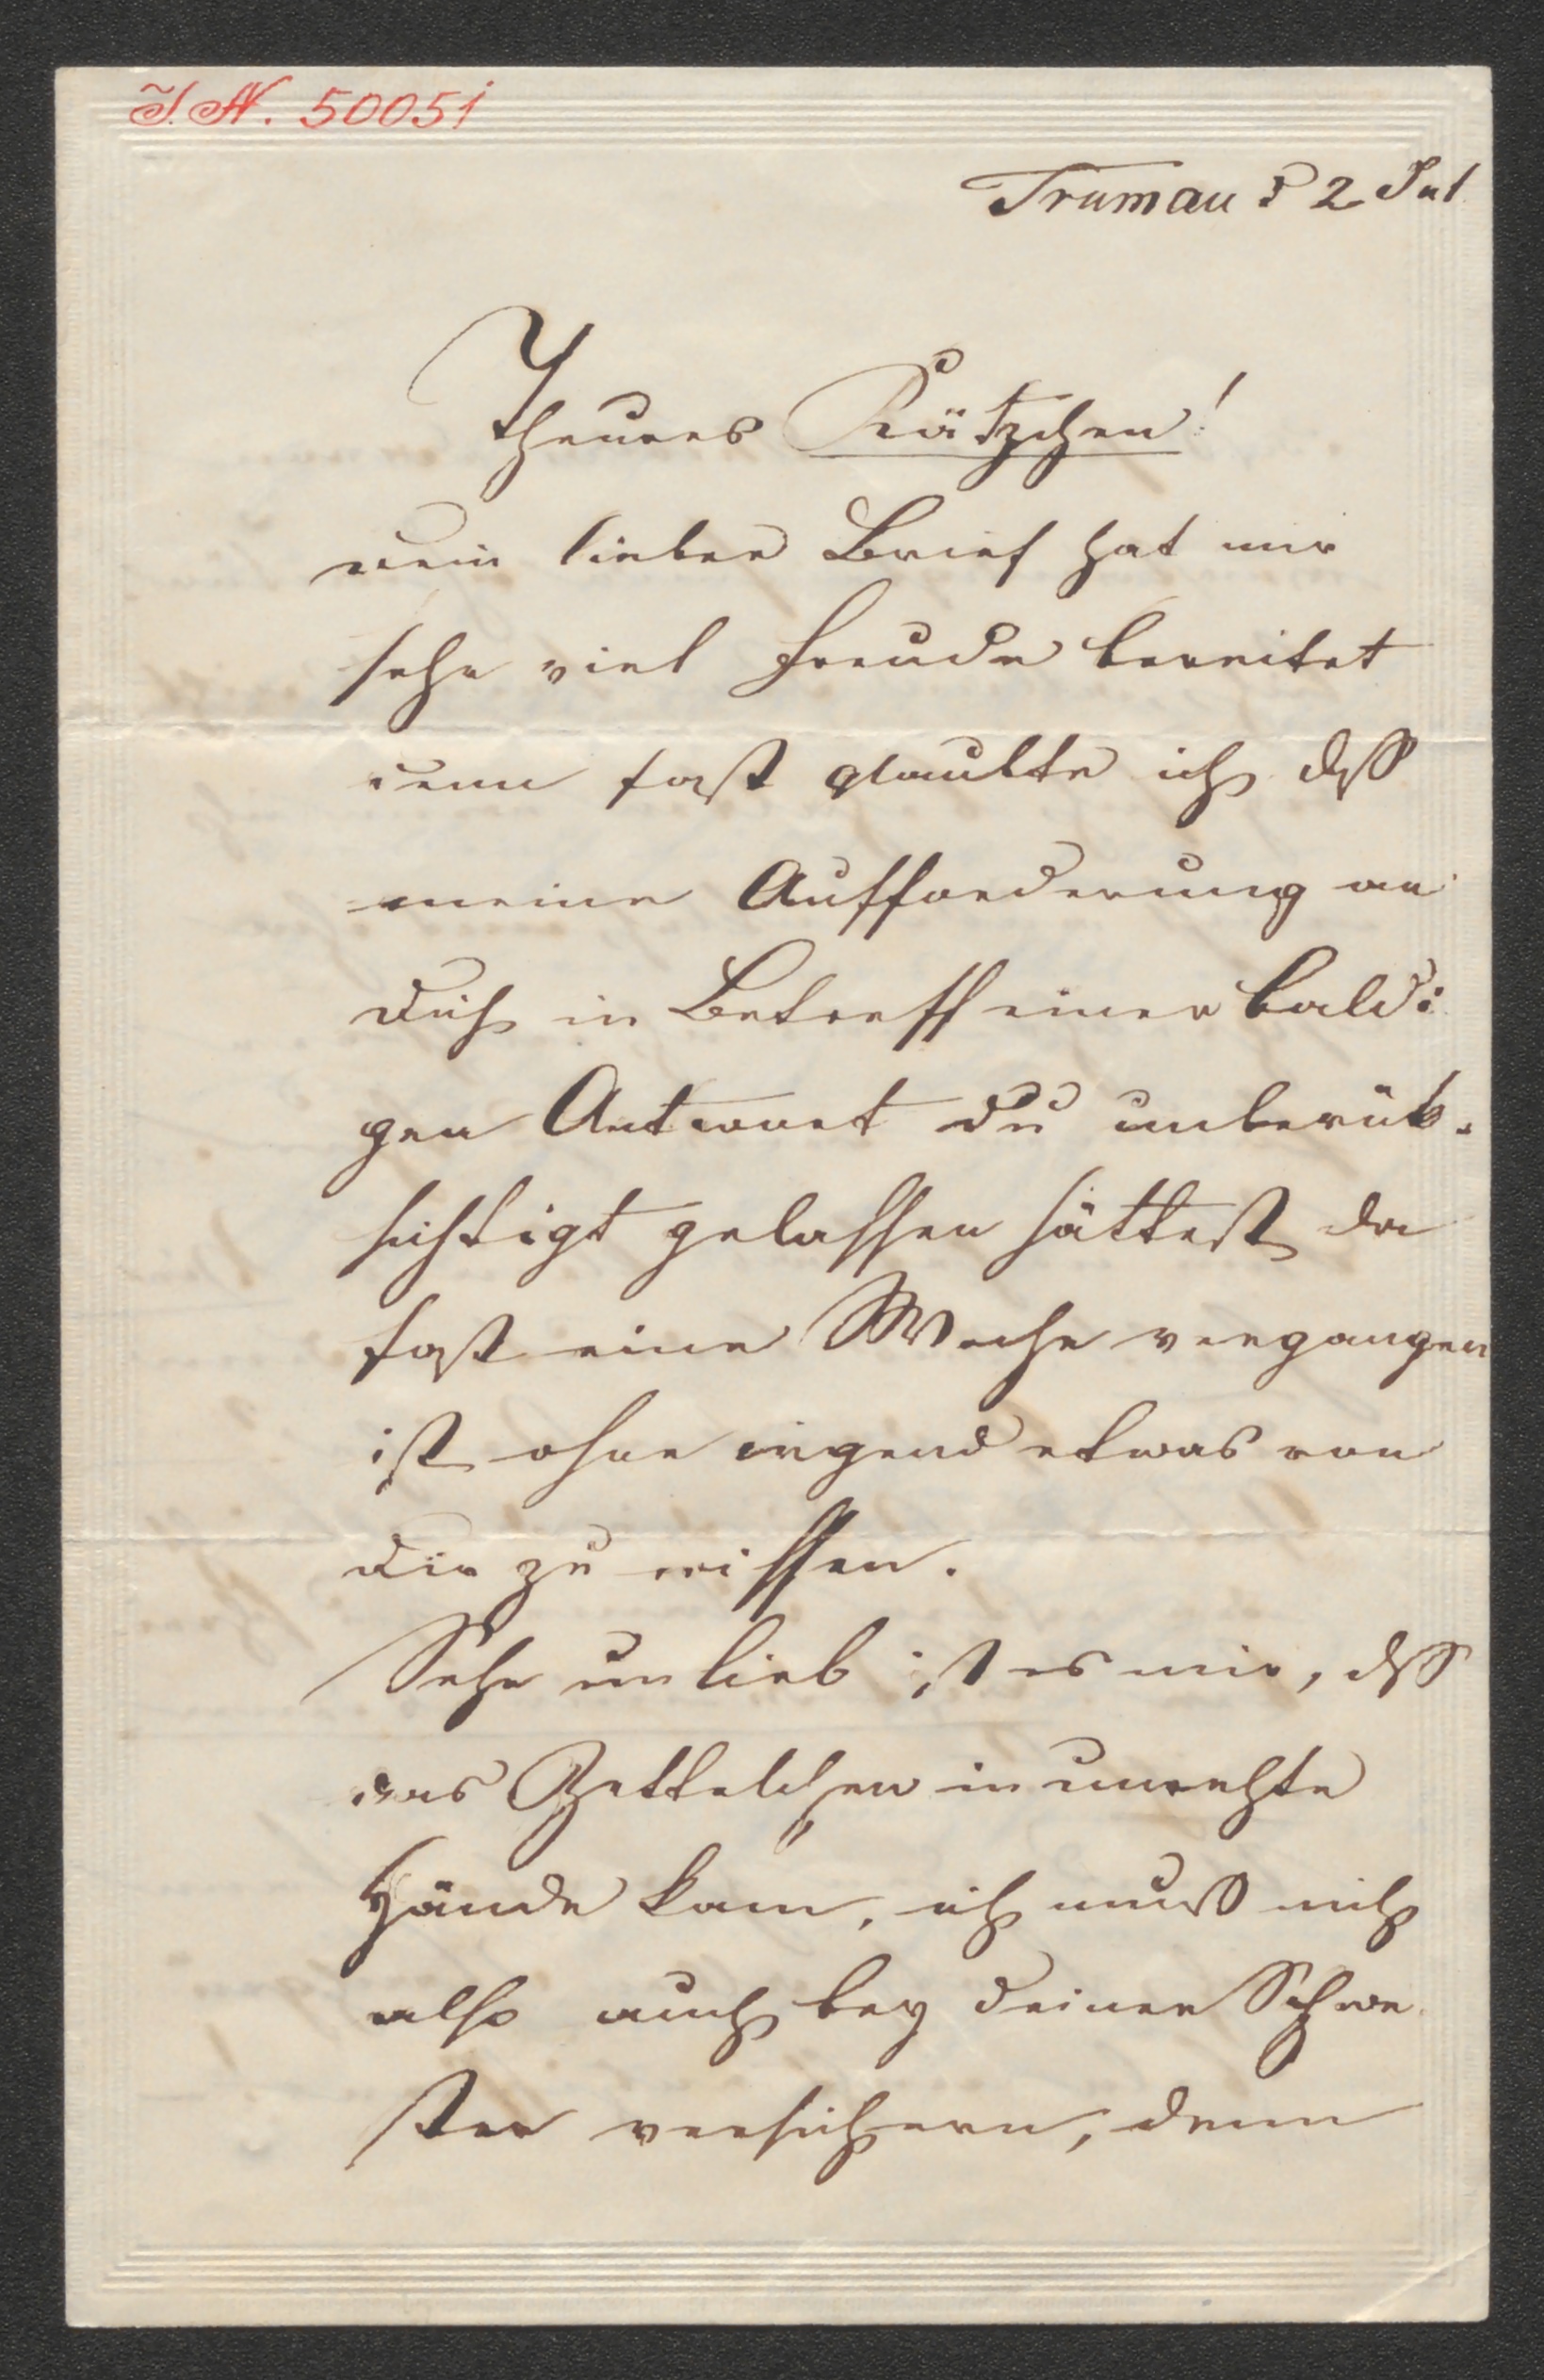 I. N. 50051
Trumau d 2 Jul
Theures Kätzchen!
dein lieber Brief hat mir
sehr viel Freude bereitet
denn fast glaubte ich dss
meine Aufforderung an
dich in Betreff einer baldi
gen Antwort du unberük-
sichtigt gelassen hättest da
fast eine Woche vergangen
ist ohne irgend etwas von
dir zu wissen.
Sehr unlieb ist es mir, dss
das Zettelchen in unrechte
Hände kam, ich muß mich
also auch bey deiner Schwe
ster versichern, denn